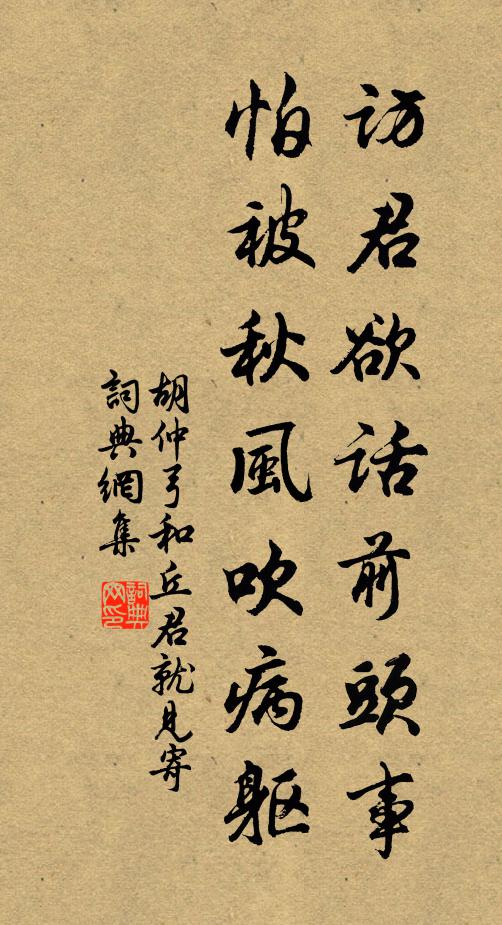 访君欲话前頭事
怕被秋風吹病躯
胡仲弓和丘君就見寄
詞典網集
詞典
网印